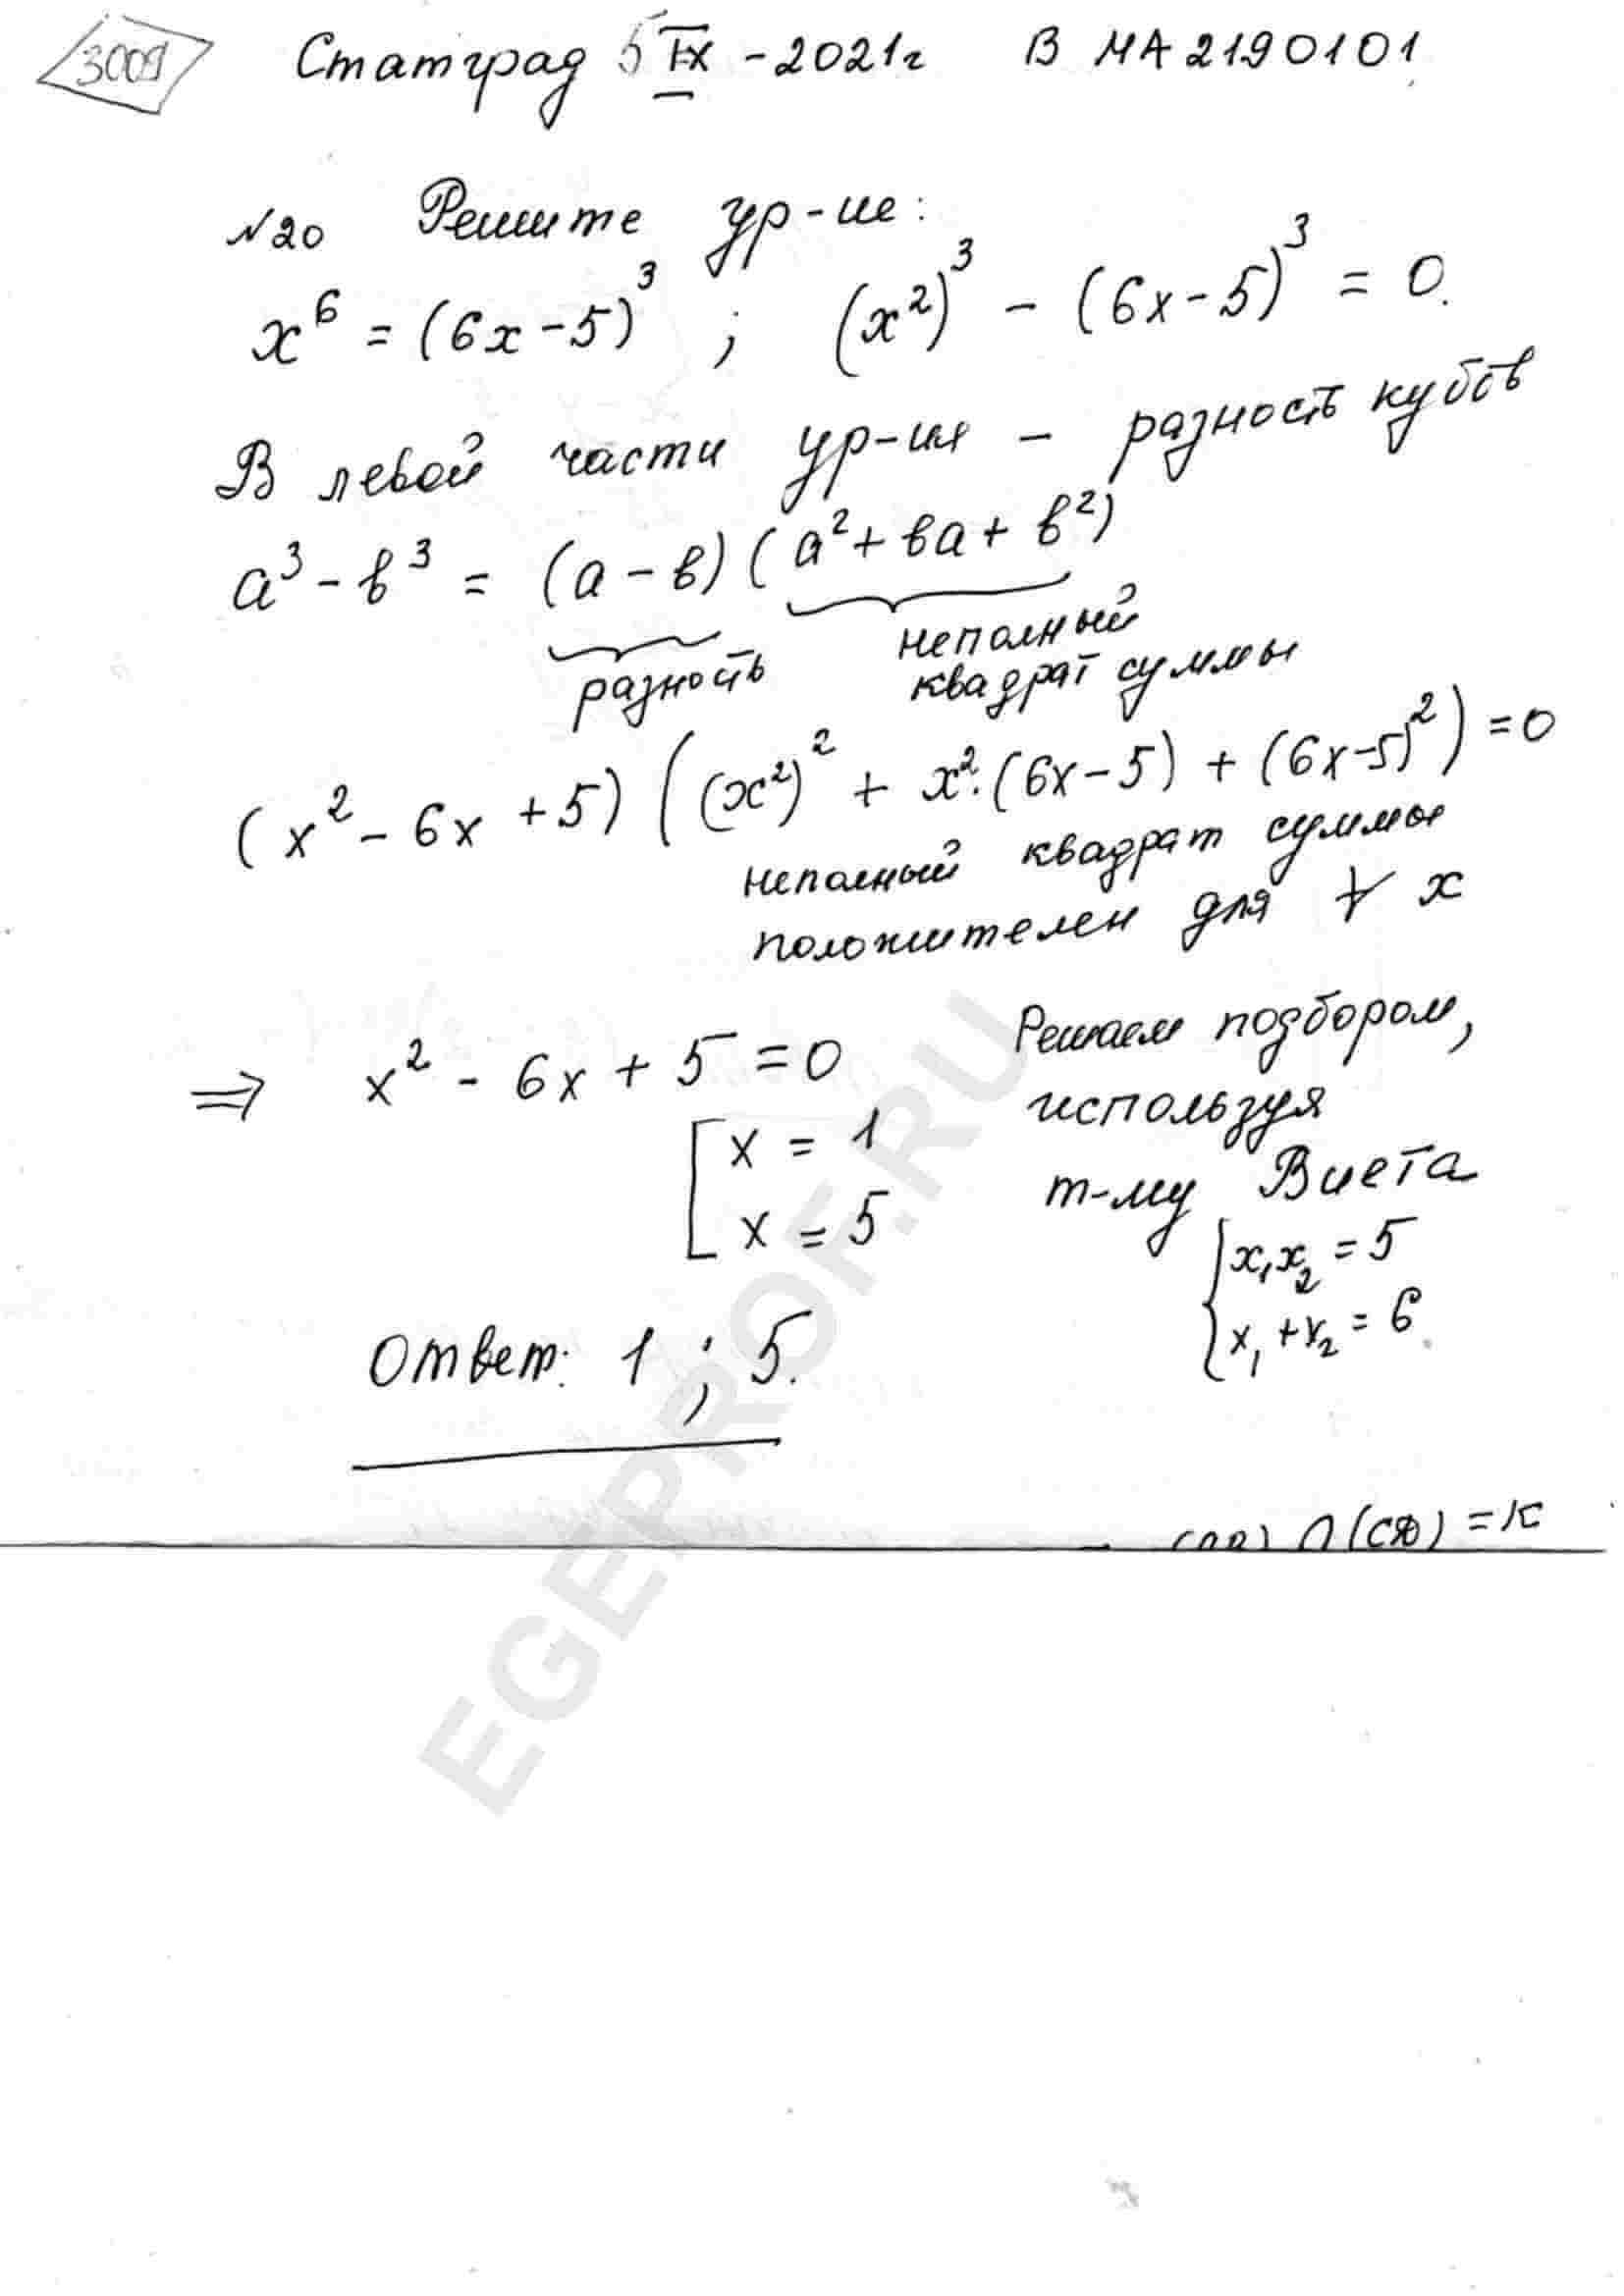 3009 Статград 5 IX - 2021г В МА2190101
№20 Решите ур-ие:
x⁶ = (6x - 5)³ ; (x²)³ - (6x - 5)³ = 0.
В левой части ур-ия - разность кубов
a³ - в³ = (a - в)(a² + вa + в²)
разность неполный
квадрат суммы
(x² - 6x + 5)((x²)² + x²·(6x - 5) + (6x - 5)²) = 0
неполный квадрат суммы
положителен для ∀ x
⇒ x² - 6x + 5 = 0 Решаем подбором,
x = 1 используя
x = 5 т-му Виета
x₁x₂ = 5
x₁ + x₂ = 6
Ответ: 1 ; 5.
∩ (СD) = K
EGEPROF.RU